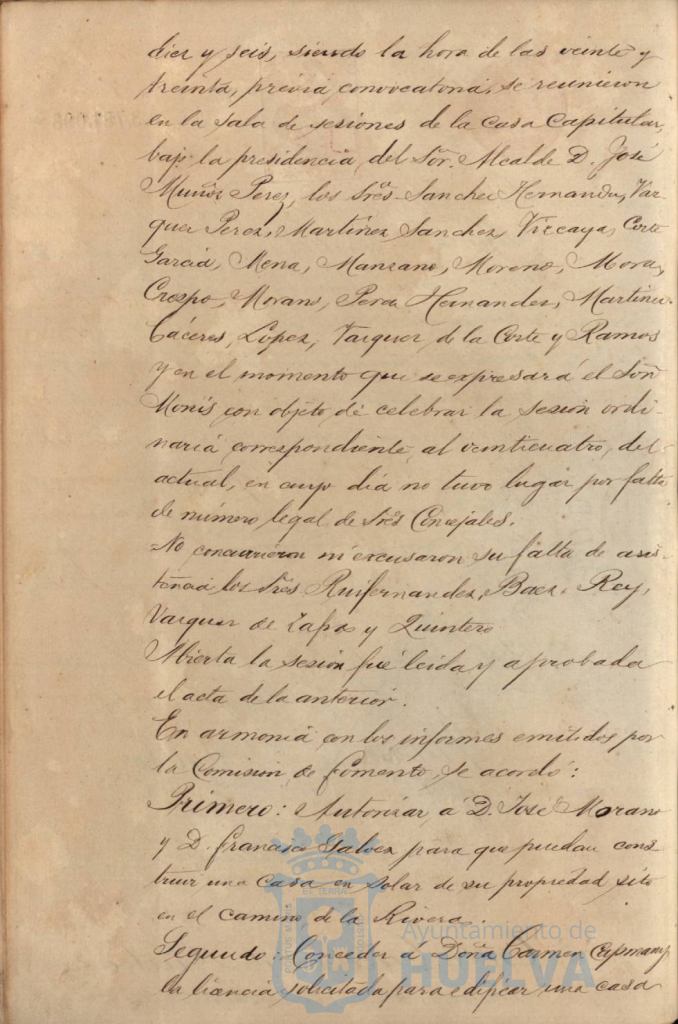 diez y seis, siendo la hora de las veinte y
treinta, previa convocatoria, se reunieron
en la sala de sesiones de la Casa Capitular,
bajo la presidencia del Sor. Alcalde D. José
Muñoz Perez, los Sres. Sanchez Hernandez, Vaz-
quez Perez, Martinez Sanchez, Vizcaya, Corte
Garcia, Mena, Manzano, Moreno, Mora,
Crespo, Morano, Perez Hernandez, Martinez
Cáceres, Lopez, Vazquez, de la Corte y Ramos
y en el momento que se expresará el Sor.
Monis con objeto de celebrar la sesion ordi-
naria correspondiente al veinticuatro, del
actual, en cuyo dia no tuvo lugar por falta
de número legal de Sres Concejales.
No concurrieron ni excusaron su falta de asis-
tencia los Sres Ruifernandez, Baez, Rey,
Vazquez de Zafra y Quintero
Abierta la sesion fué leida y aprobada
el acta de la anterior.
En armonia con los informes emitidos por
la Comision de Fomento, se acordó:
Primero: Autorizar á D. José Morano
y D. Francisco Galvez para que puedan cons
truir una casa en solar de su propiedad, sito
en el camino de la Rivera.
Segundo: Conceder á Doña Carmen Capmany
la licencia solicitada para edificar una casa
Ayuntamiento de
HUELVA